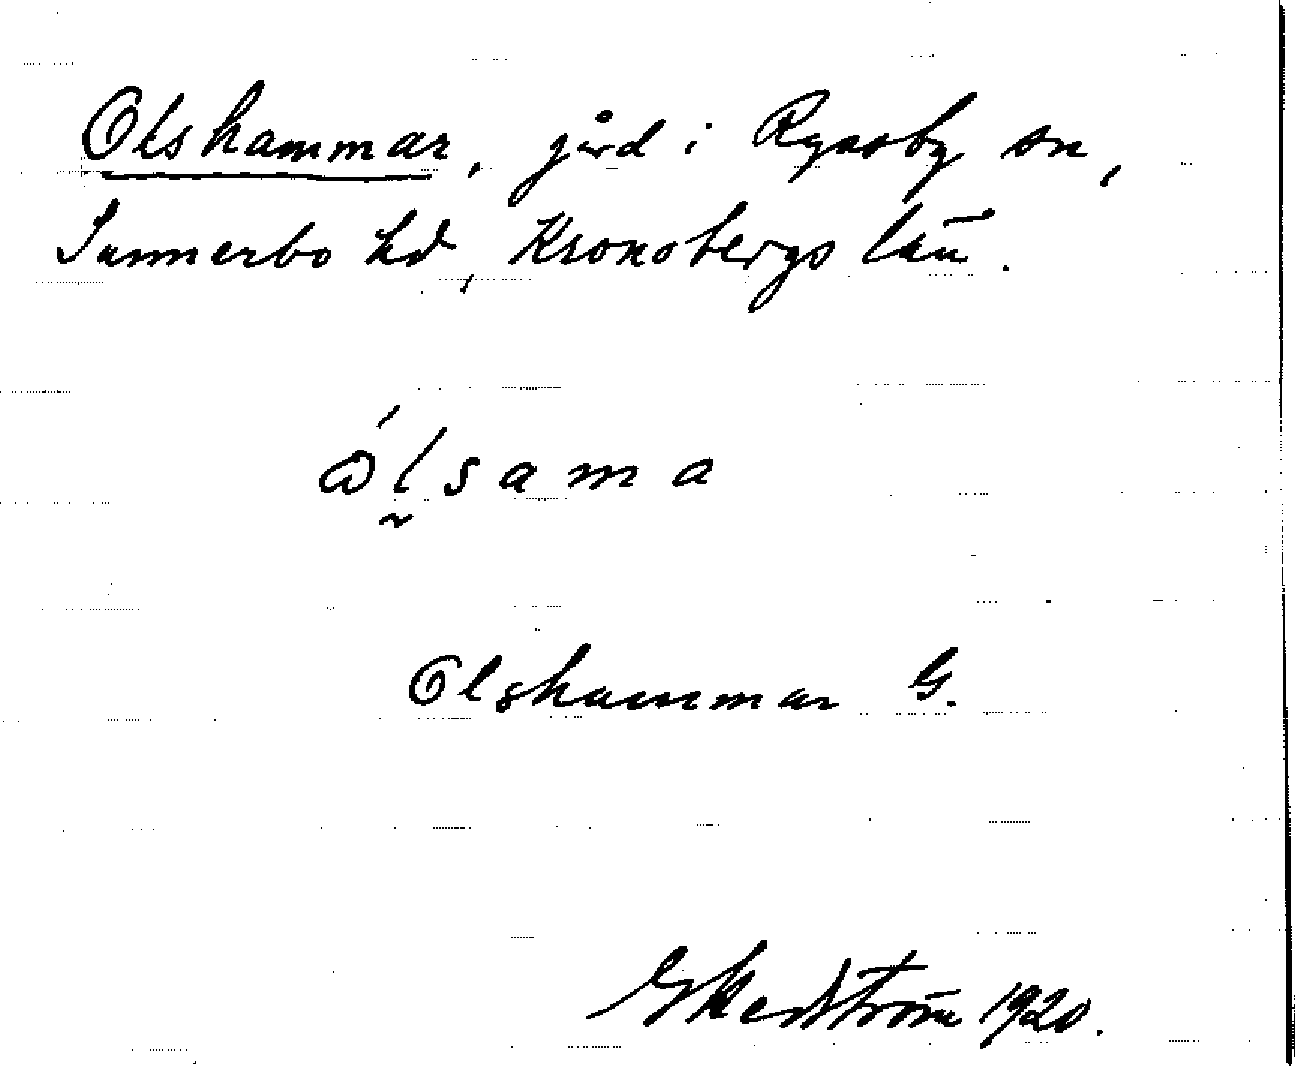 Olshammar, gård i Ryssby sn,
Sunnerbo hd, Kronobergs län.
ώl̰sama
Olshammar G.
G Hedström 1920.